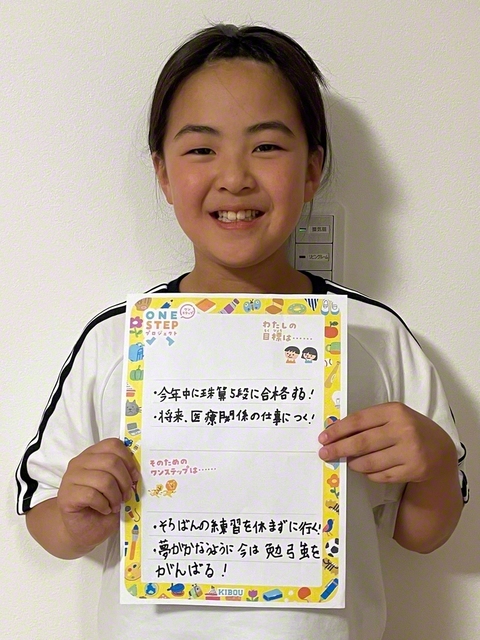 ONE
STEP
プロジェクト
わたしの
目標は……
・今年中に珠算5段に合格する!
・将来、医療関係の仕事につく!
そのための
ワンステップは……
・そろばんの練習を休まずに行く!
・夢がかなうように今は勉強を
がんばる!
KIBOU